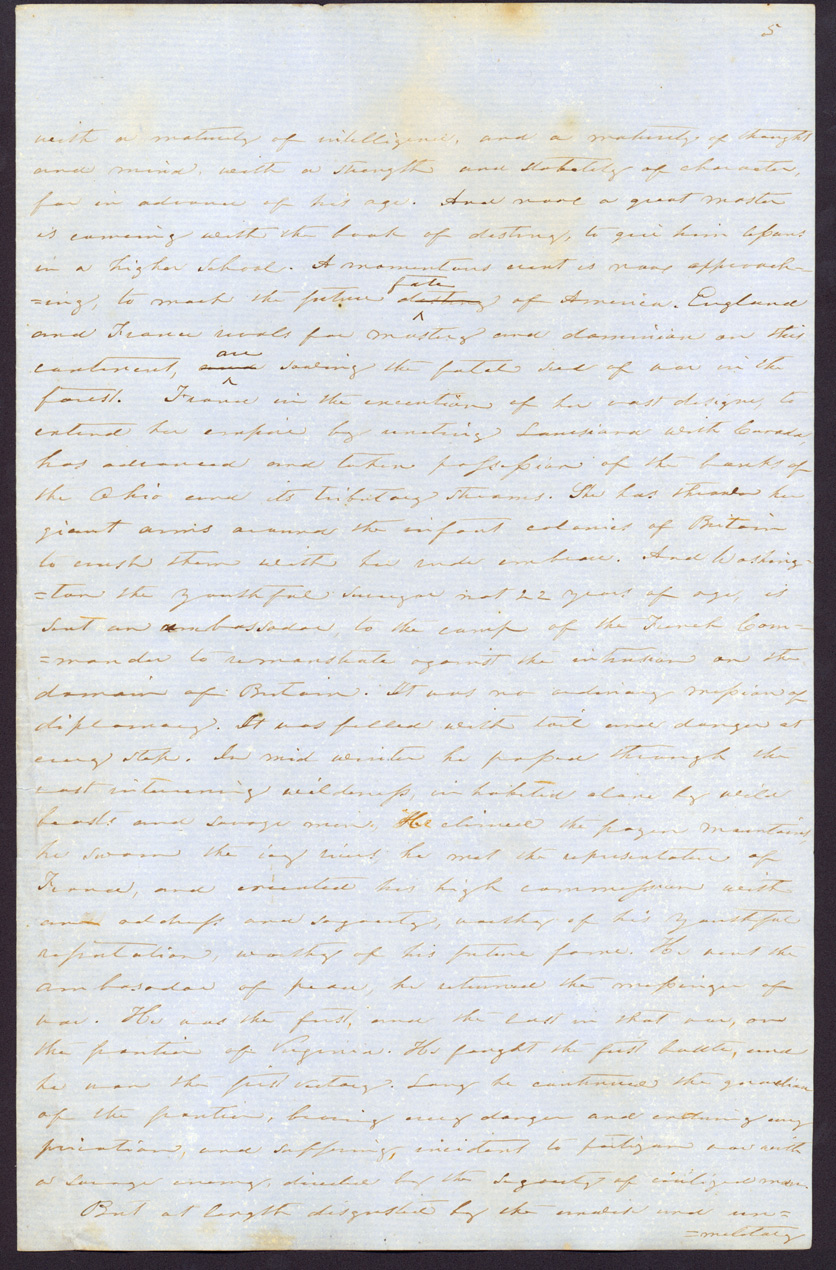 5
with a maturity of intelligence, and a maturity of thought
and mind, with a strength and stability of character,
far in advance of his age. And now a great master
is coming with the book of destiny, to give him lessons
in a higher school. A momentous event is now approach=
fate
=ing, to mark the future destiny of America. England
and France rivals for mastery and dominion on this
are
continent, and sowing the fatal seed of war in the
forest. France in the execution of her vast designs, to
extend her empire by uniting Louisiana with Canada
has advanced and taken possession of the banks of
the Ohio and its tributary streams. She has thrown her
giant arms around the infant colonies of Britain
to crush them with her rude embrace. And Washing=
=ton the youthful surveyor not 22 years of age, is
sent an ambassador, to the camp of the French Com=
=mander to remonstrate against the intrusion on the
domain of Britain. It was no ordinary mission of
diplomacy. It was filled with toil and danger at
every step. In mid winter he passed through the
vast intervening wilderness, inhabited alone by wild
beasts and savage men, He climed the frozen mountains
he swam the icy rivers he met the representative of
France, and executed his high commission with
an address and sagacity, worthy of his youthful
reputation, worthy of his future fame. He went the
ambasador of peace, he returned the messenger of
war. He was the first, and the last in that war, on
the frontier of Virginia. He fought the first battle, and
he won the first victory. Long he continued the guardian
of the frontier, braving every danger and enduring every
privation, and suffering, incident to partizan war with
a savage enemy, directed by the sagacity of civilized man.
But at length disgusted by the unwise and un=
=military